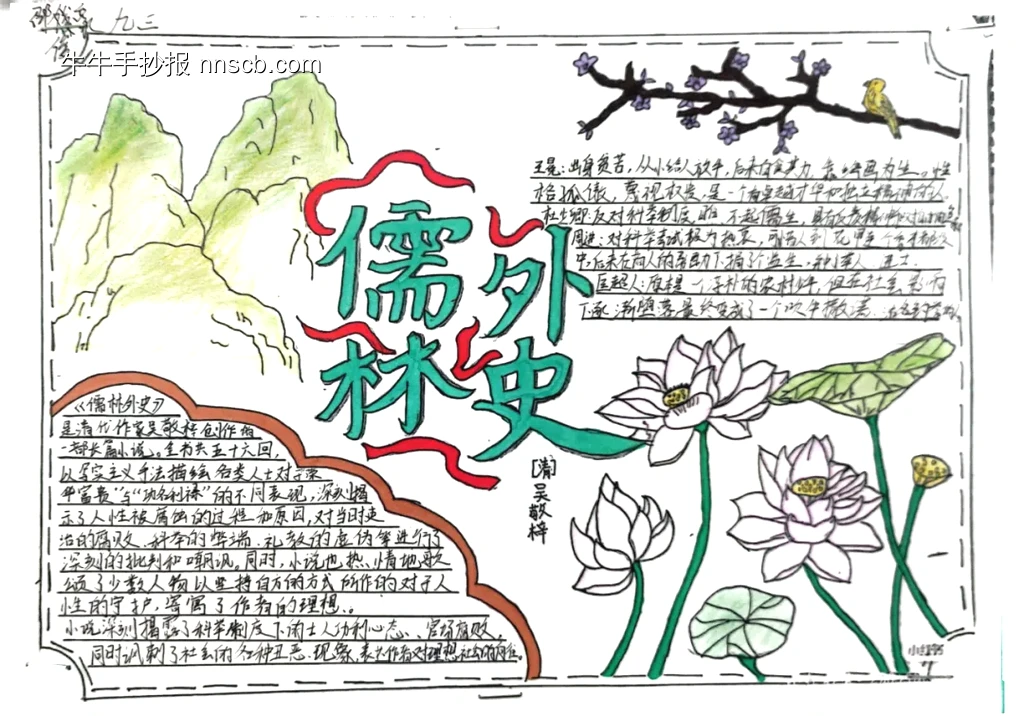 九三
牛牛手抄报 nnscb.com
儒林外史
[清]吴敬梓
王冕：出身贫苦，从小给人放牛，后来自食其力，靠画画为生。性
格孤傲，蔑视权贵，是一个有卓越才华和独立精神的人。
杜少卿反对科举制度
周进：对科举考试极为热衷
中后来在商人的帮助下捐了个监生，
匡超人：原是一个淳朴的农村少年，但在社会影响
下逐渐堕落最终变成了一个吹牛撒谎
《儒林外史》
是清代作家吴敬梓创作的
一部长篇小说。全书共五十六回，
以写实主义手法描绘各类人士对于
“功名利禄”的不同表现，深刻揭
示了人性被腐蚀的过程和原因，对当时吏
治的腐败、科举的弊端、礼教的虚伪等进行了
深刻的批判和嘲讽。同时，小说也热情地歌
颂了少数人物以坚持自我的方式所作的对于人
性的守护，寄寓了作者的理想。
小说深刻揭露了科举制度下的士人功利心态、官场腐败，
同时讽刺了社会的各种丑恶现象，表达作者对理想社会的向往。
小红书